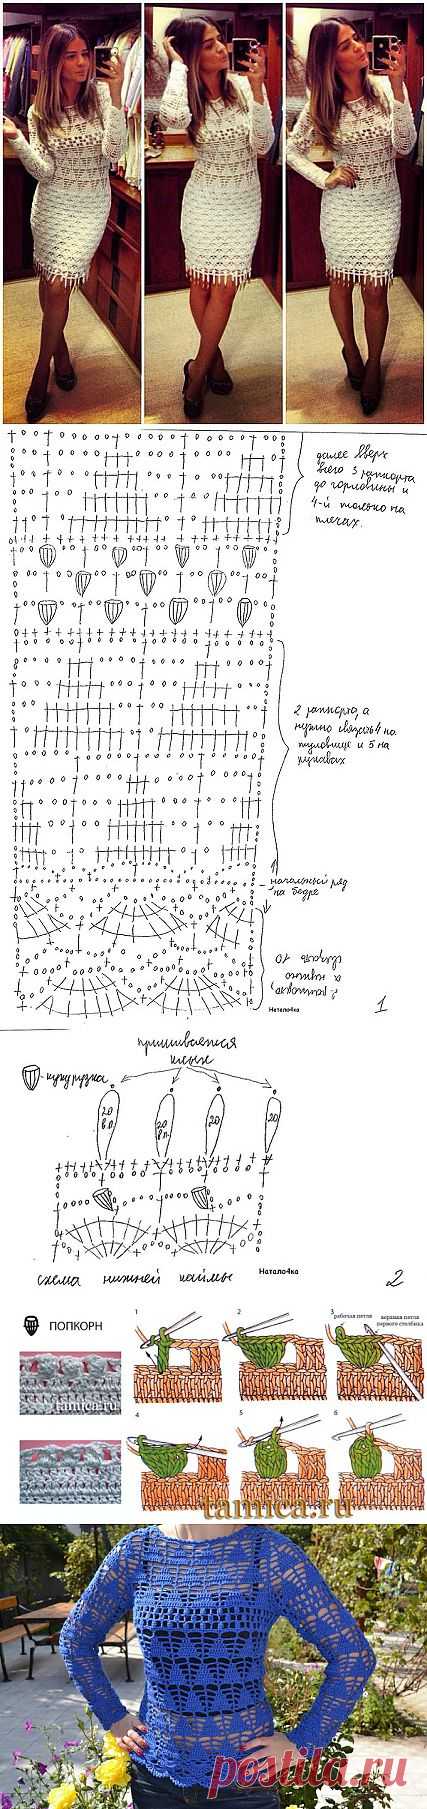 далее вверх
всего 3 раппорта
до горловины и
4-й только на
плечах.
2 раппорта, а
нужно связать 4 на
туловище и 5 на
рукавах
начальный ряд
на бедре
Натало4ка
1
пришивается
клык
- кукурузка
20
в.п.
20
в.п.
20
20
схема нижней каймы
Натало4ка
2
ПОПКОРН
1
2
3
рабочая петля
верхняя петля
первого столбика
4
5
6
tamica.ru
tamica.ru
postila.ru